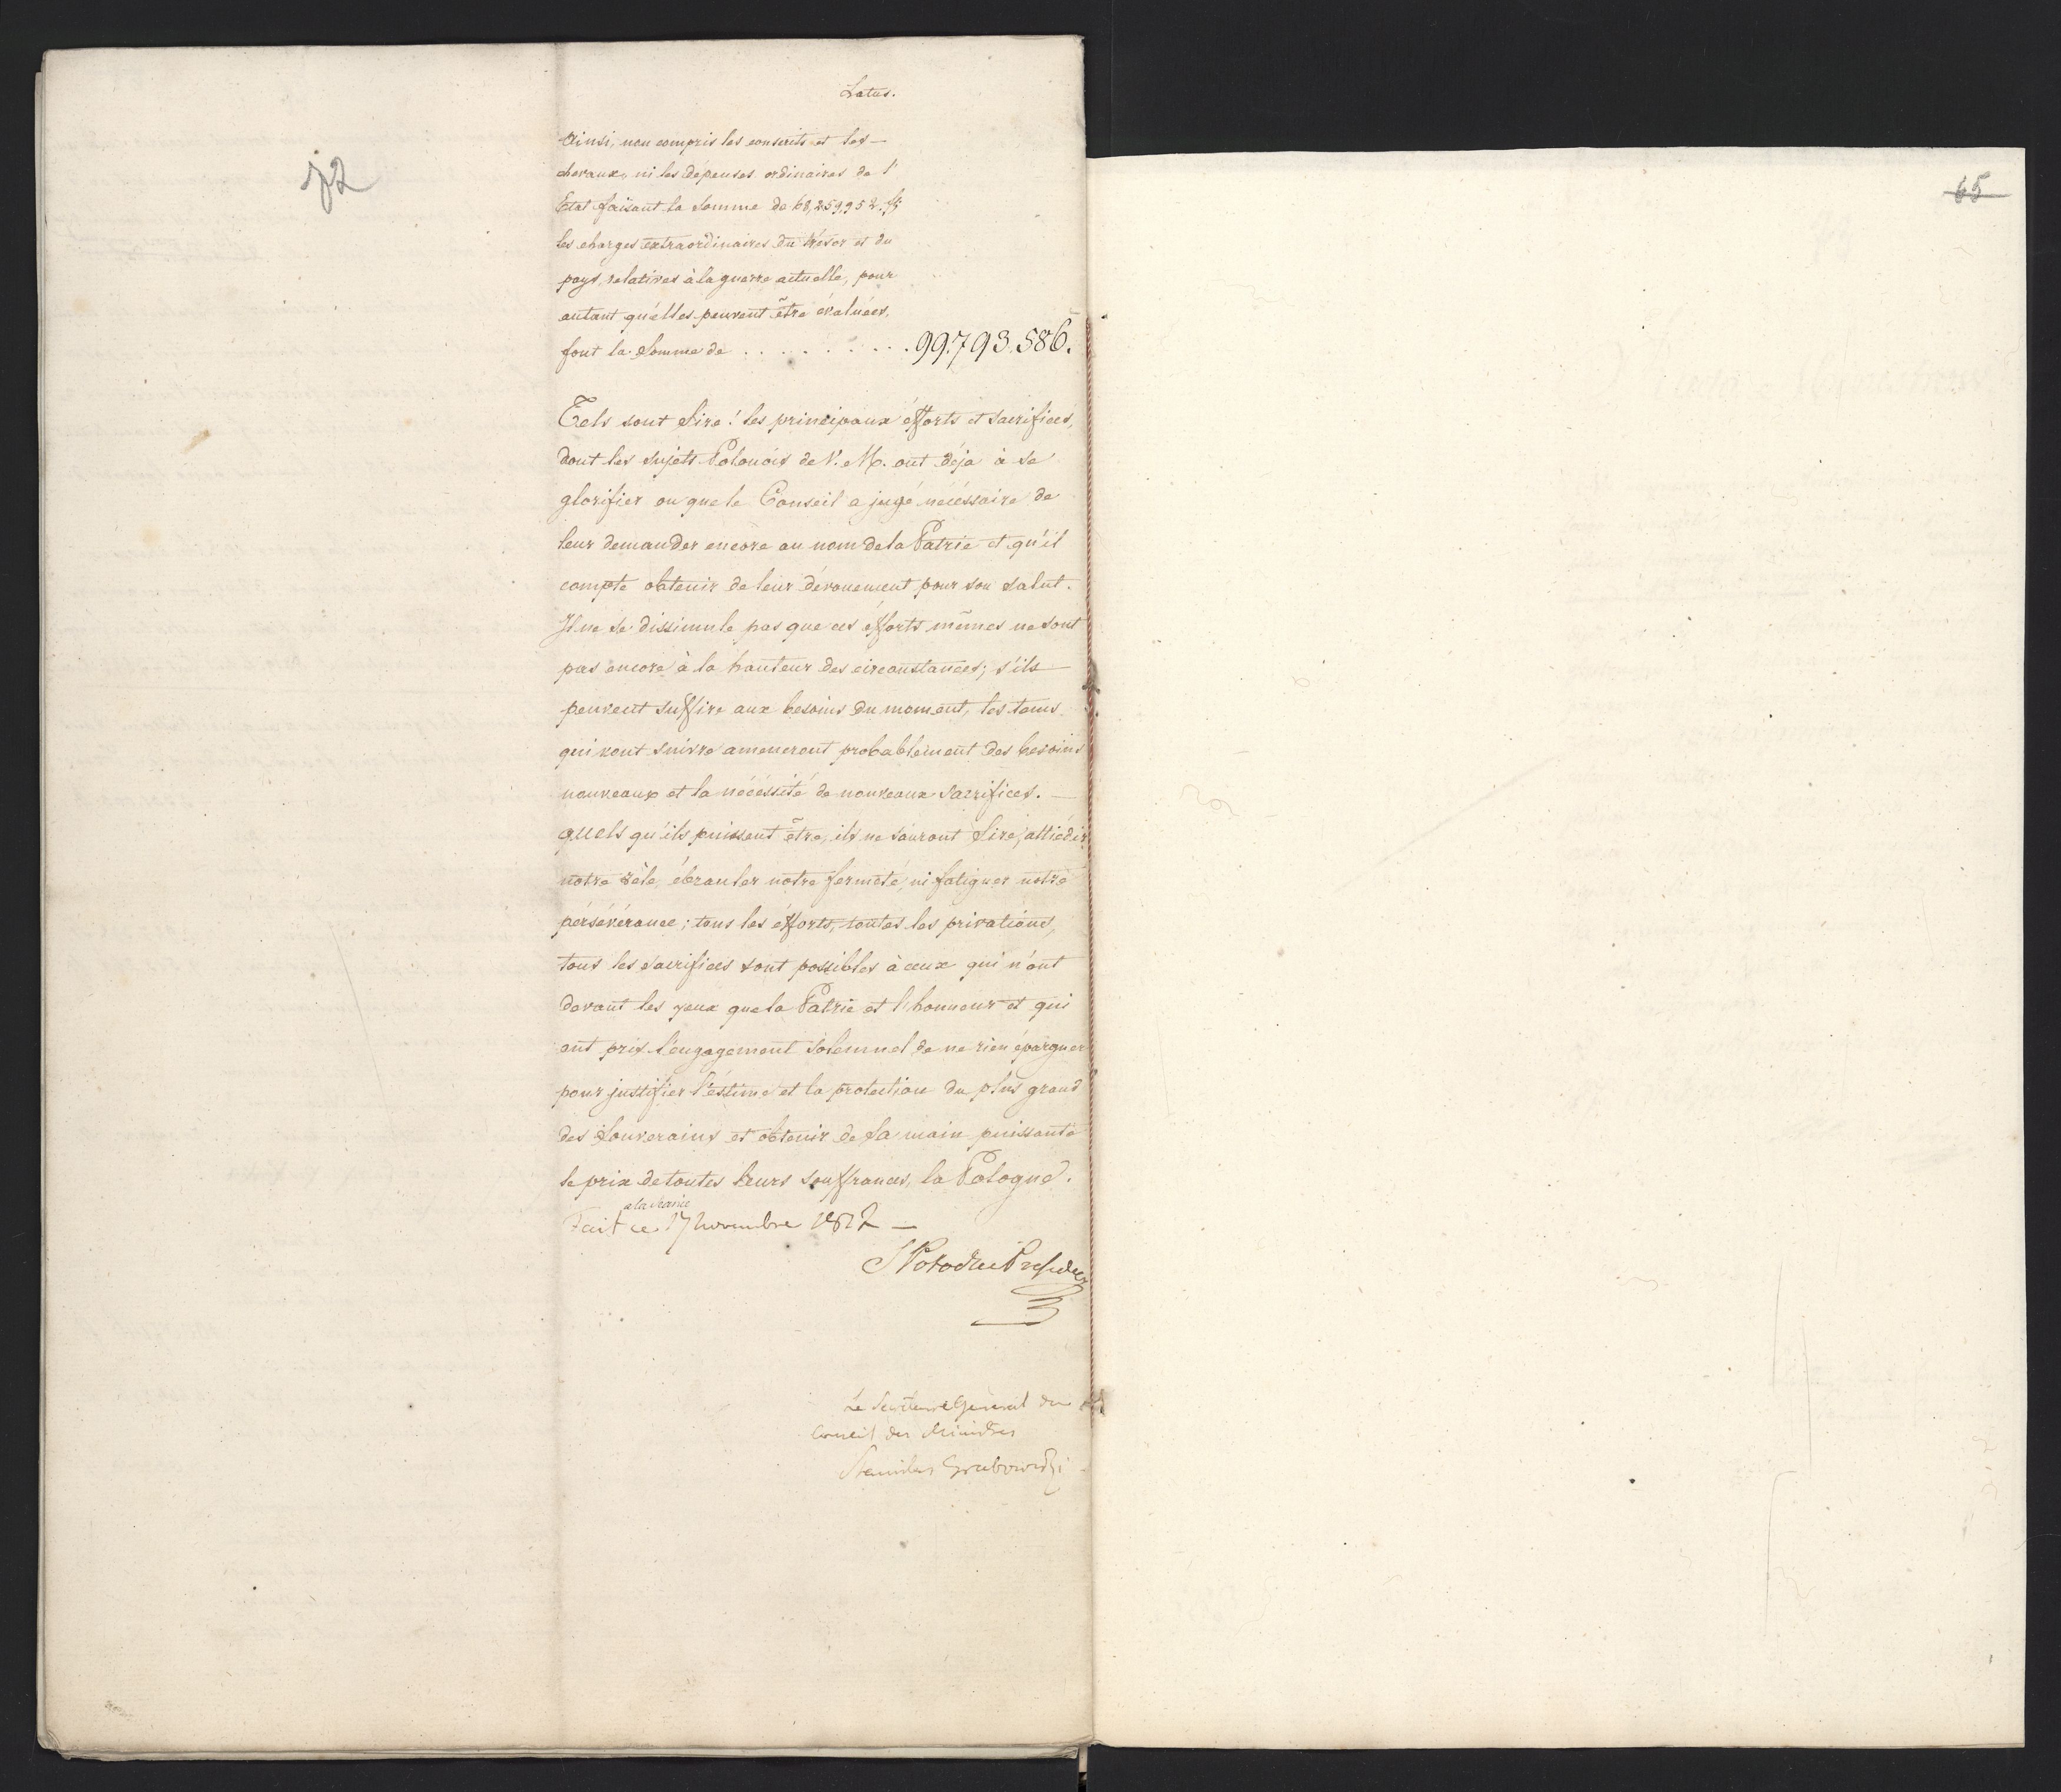 Latus.
72
65
Ainsi, non compris les conscrits et les —
chevaux, ni les dépenses ordinaires de l'
État faisant la Somme de 68,259,952. f
les charges extraordinaires du trésor et du
pays, relatives à la guerre actuelle, pour
autant qu'élles peuvent être évaluées,
font la Somme de . . . . . . . . . 99.793.586.
Tels sont Sire! les principaux éfforts et sacrifices,
dont les sujets Polonois de V. M. ont déja à se
glorifier ou que le Conseil a jugé nécéssaire de
leur demander encore au nom de la Patrie et qu'il
compte obtenir de leur dévouement pour son salut.
Il ne se dissimule pas que ces éfforts mêmes ne sont
pas encore à la hauteur des circonstances; s'ils —
peuvent suffire aux besoins du moment, les tems
qui vont suivre ameneront probablement des besoins
nouveaux et la nécéssité de nouveaux sacrifices. —
quels qu'ils puissent être, ils ne sauront Sire, attiédir
notre zèle, ébranler notre fermeté, ni fatiguer notre
pérsévérance; tous les éfforts, toutes les privations,
tous les sacrifices sont possibles à ceux qui n'ont
devant les yeux que la Patrie et l'honneur et qui
ont pris l'engagement solemnel de ne rien épargner
pour justifier l'éstime et la protection du plus grand
des Souverains et obtenir de Sa main puissante
le prix de toutes leurs souffrances, la Pologne.
Fait ce 17 Novembre 1812 —
Le Secretaire Général du
Conseil des Ministres
Stanislas Grabowski